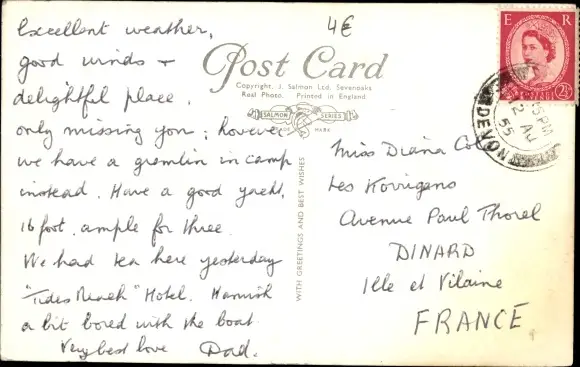 Excellent weather,
good winds +
delightful place.
only missing you; however
we have a gremlin in camp
instead. Have a good yacht,
16 foot, ample for three.
We had tea here yesterday
"Tides Reach" Hotel. Hamish
a bit bored with the boat.
Very best love Dad.
4€
Post Card
Copyright. J. Salmon Ltd, Sevenoaks
Real Photo. Printed in England
SALMON SERIES
TRADE MARK
WITH GREETINGS AND BEST WISHES
Miss Diana
Les Korrigans
Avenue Paul Thorel
DINARD
Ille et Vilaine
FRANCE
E R
2½
15PM
12 AU
55
DEVON